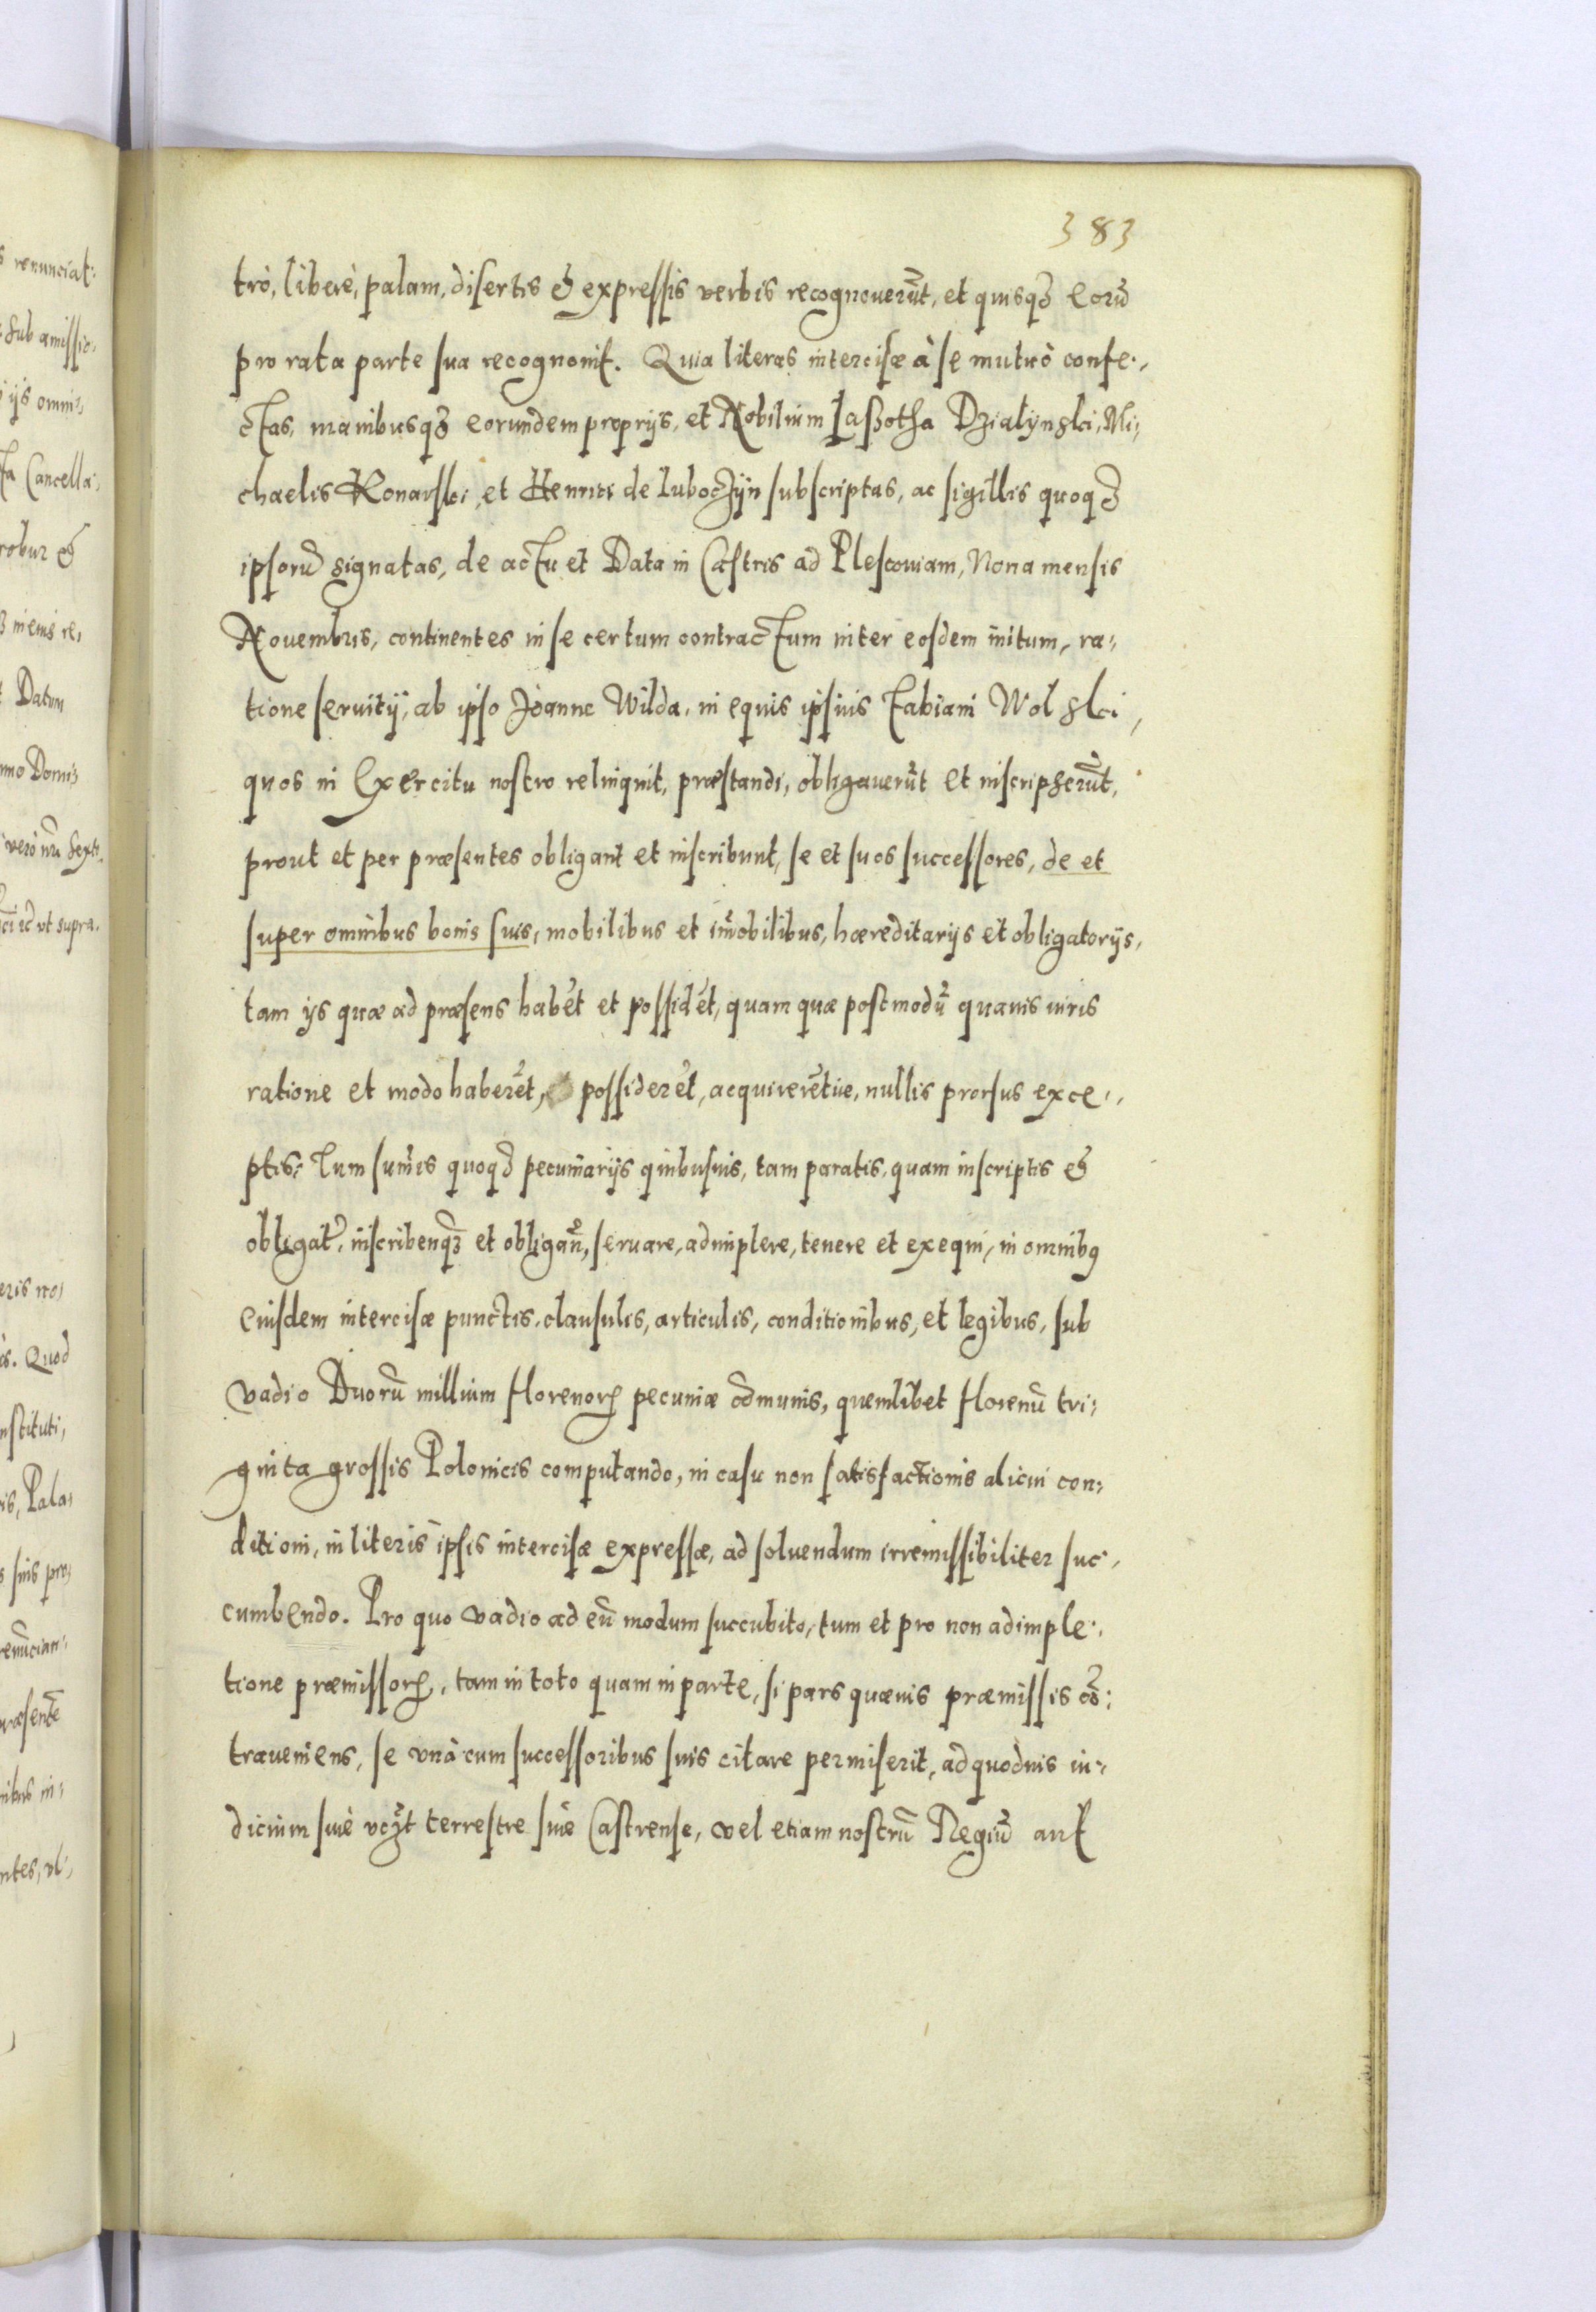 383
trò, liberè, palam, disertis & expressis verbis recognouerūt, et quisq3 eorū
pro rata parte sua recognouit. Quia literas intercisæ à se mutuò confe-
ctas, manibusq3 eorundem proprijs, et Nobilium Laßotha Dzialynski, Mi-
chaelis Konarski, et Henrici de Luboczyn subscriptas, ac sigillis quoq3
ipsorū signatas, de actu et Data in Castris ad Plescouiam, Nona mensis
Nouembris, continentes in se certum contractum inter eosdem initum, ra-
tione seruitij, ab ipso Joanne Wilda, in equis ipsius Fabiani Wolski,
quos in Exercitu nostro relinquit, præstandi, obligauerūt et inscripserūt,
prout et per præsentes obligant et inscribunt, se et suos successores, de et
super omnibus bonis suis, mobilibus et im̄obilibus, hæreditarijs et obligatorijs,
tam ijs quæ ad præsens habēt et possidēt, quam quæ postmodū quauis iuris
ratione et modo haberēt, possiderēt, acquirerētue, nullis prorsus exce-
ptis: Tum sum̄is quoq3 pecuniarijs quibusuis, tam paratis, quam inscriptis &
obligat', inscribenq3 et obligan̄, seruare, adimplere, tenere et exequi, in omnibg
eiusdem intercisæ punctis, clausulis, articulis, conditionibus, et legibus, sub
vadio Duorū millium florenor pecuniæ cōmunis, quemlibet florenū tri-
ginta grossis Polonicis computando, in casu non satisfactionis alicui con-
ditioni, in literis ipsis intercisæ expressæ, ad soluendum irremissibiliter suc-
cumbendo. Pro quo vadio ad eū modum succubito, tum et pro non adimple-
tione præmissor, tam in toto quam in parte, si pars quæuis præmissis cō-
traueniens, se vnà cum successoribus suis citare permiserit, ad quoduis iu-
dicium siuè terrestre siuè Castrense, vel etiam nostrū Regiū aut
s renunciat:
sub amissio-
ijs omni-
ta Cancella-
robur &
in eius re,
Datum
nno Domi-
vero nrī Sexti.
ut supra.
eris no
is. Quod
nstituti,
is, Pala-
suis pro-
renūcian-
præsentē
nibus in-
ntes, vl-